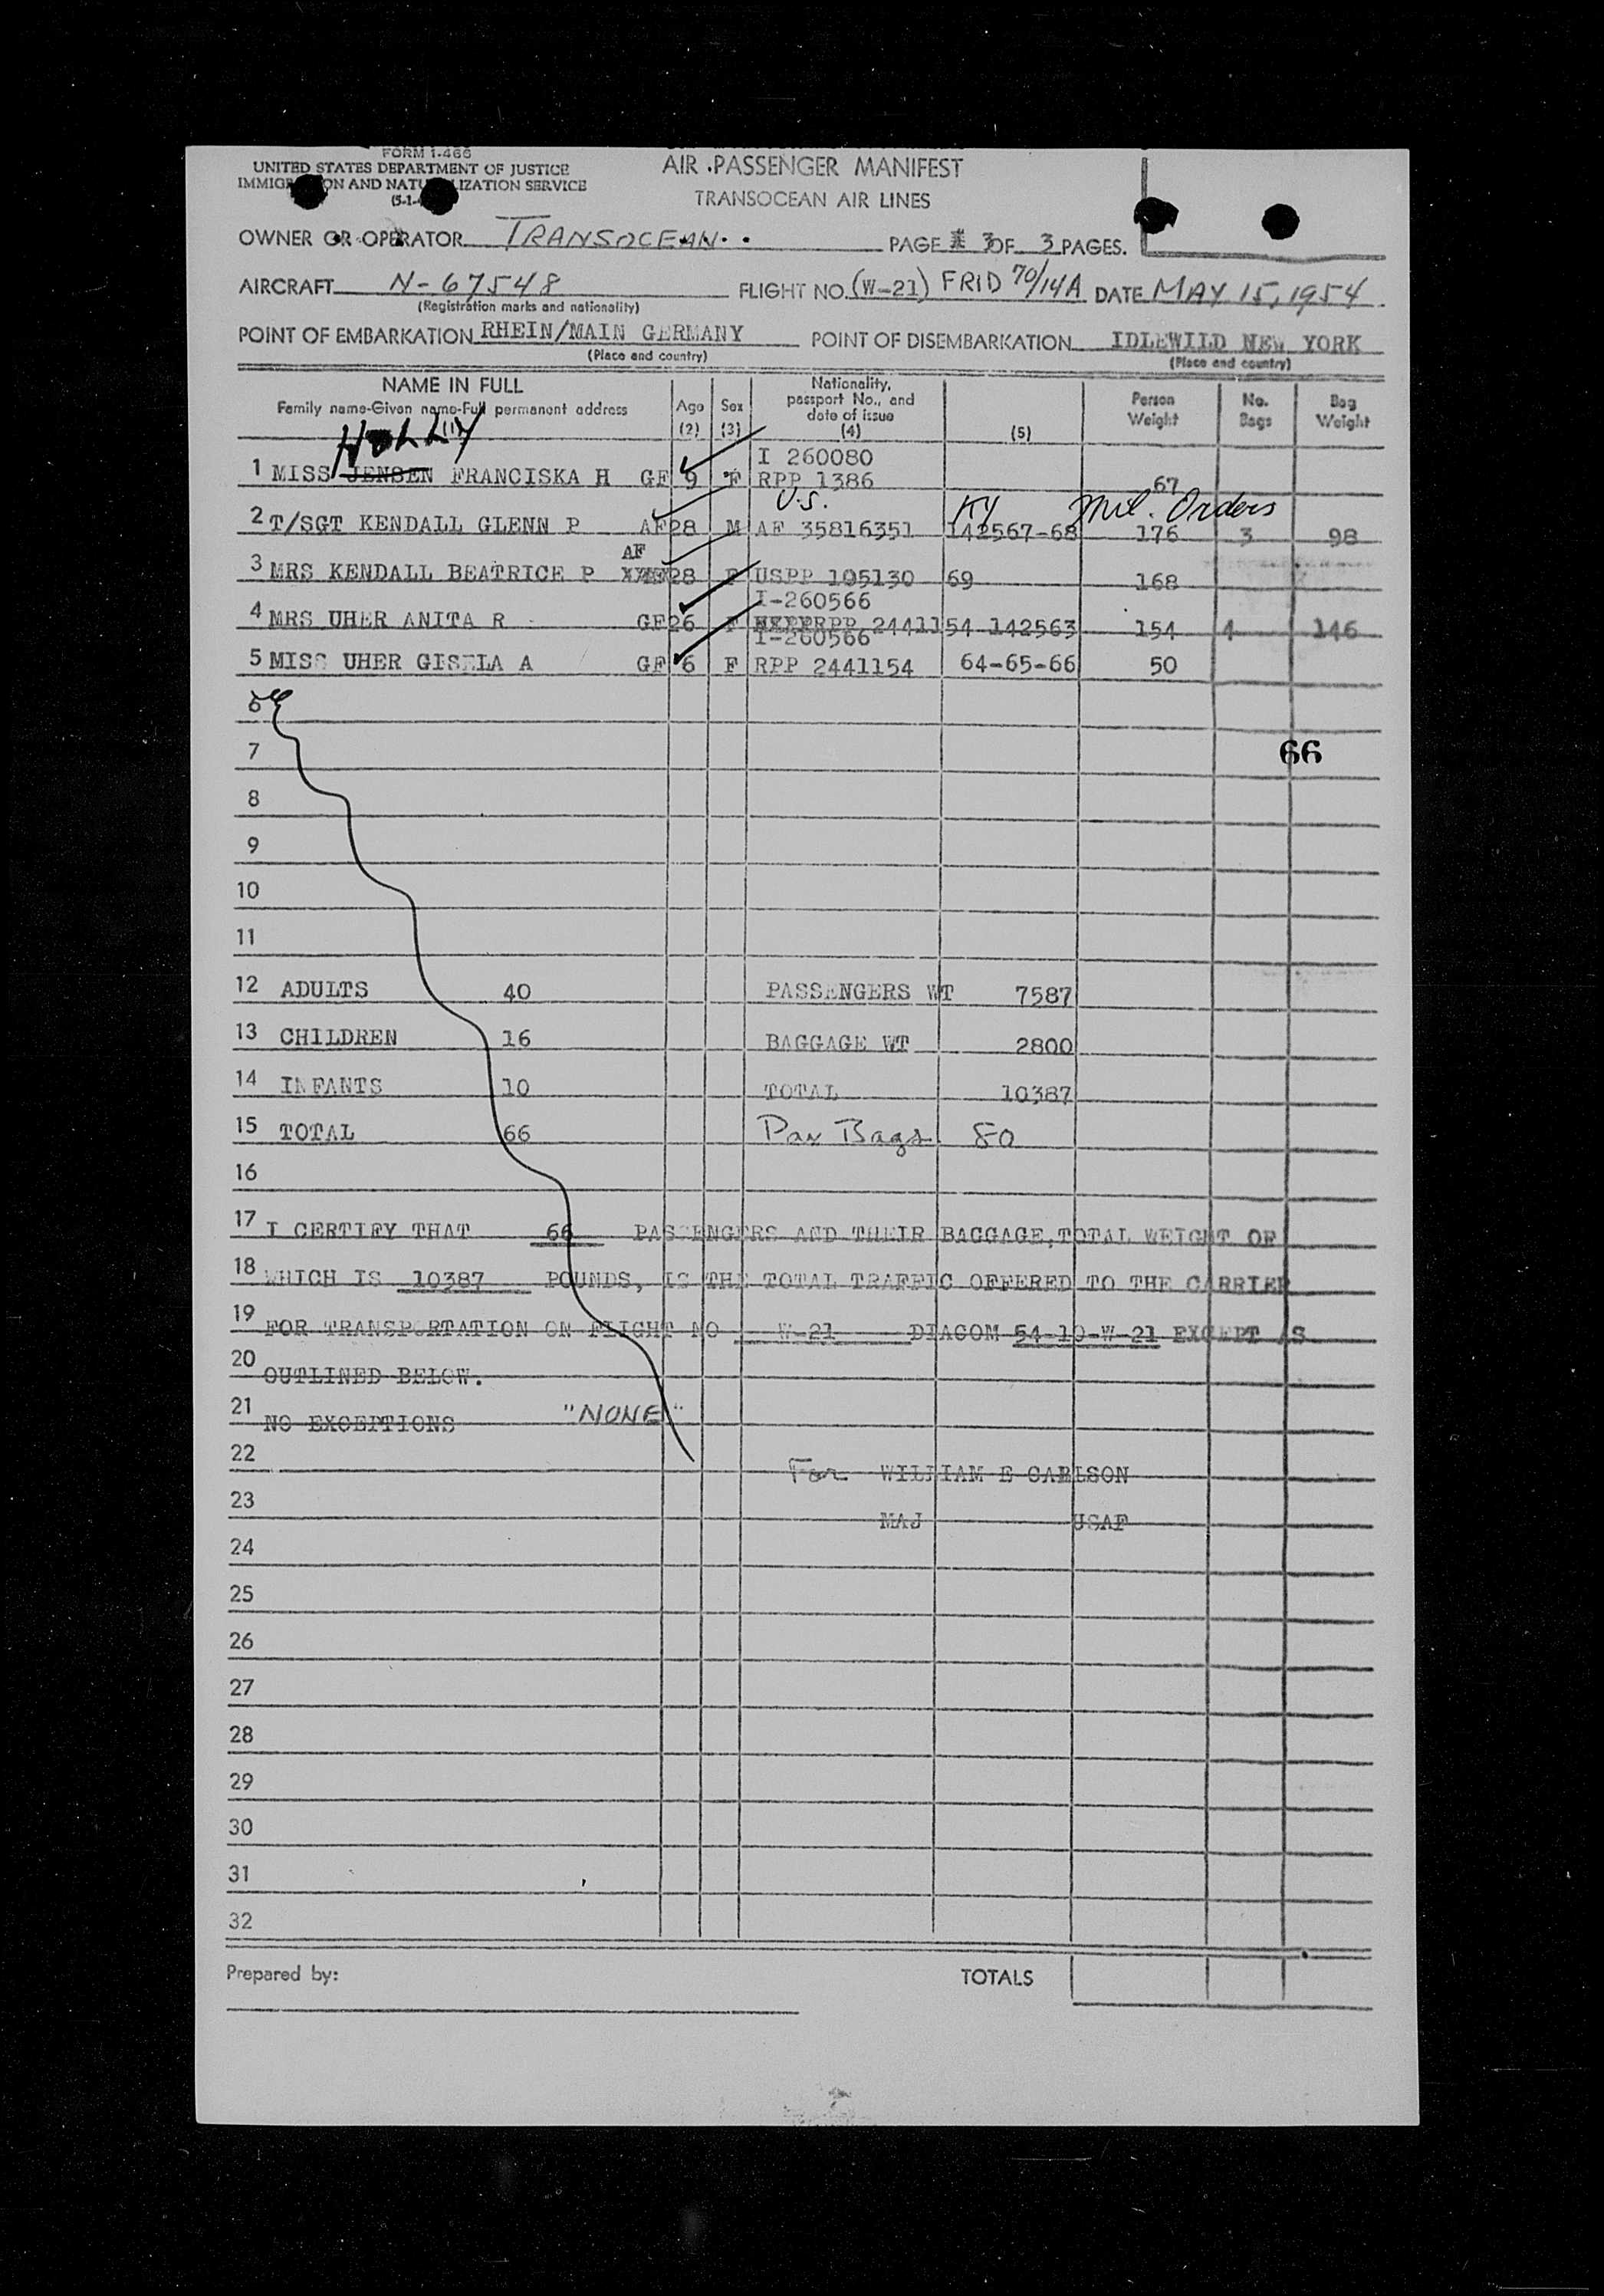 FORM I-466
UNITED STATES DEPARTMENT OF JUSTICE
AIR PASSENGER MANIFEST
AND SERVICE
TRANSOCEAN AIR LINES
OWNER OR OPERATOR TRANSOCEAN PAGE 3 OF 3 PAGES.
AIRCRAFT N-67548 FLIGHT NO. (W-21) FRID 70/14A DATE MAY 15, 1954
(Registration marks and nationality)
POINT OF EMBARKATION RHEIN/MAIN GERMANY POINT OF DISEMBARKATION IDLEWILD NEW YORK
(Place and country) (Place and country)
NAME IN FULL
Family name-Given name-Full permanent address
(1)
Age (2)
Sex (3)
Nationality, passport No., and date of issue (4)
(5)
Person Weight
No. Bags
Bag Weight
I 260080
1 MISS JENSEN FRANCISKA H GF 9 F RPP 1386 67
U.S. KY Mil. Orders
2 T/SGT KENDALL GLENN P AF 28 M AF 35816351 142567-68 176 3 98
AF
3 MRS KENDALL BEATRICE P 28 F USPP 105130 69 168
I-260566
4 MRS UHER ANITA R GF 26 F RPP 2441154 142563 154 4 146
I-260566
5 MISS UHER GISELA A GF 6 F RPP 2441154 64-65-66 50
6
7 66
8
9
10
11
12 ADULTS 40 PASSENGERS WT 7587
13 CHILDREN 16 BAGGAGE WT 2800
14 INFANTS 10 TOTAL 10387
15 TOTAL 66 Pax Bags 80
16
17 I CERTIFY THAT 66 PASSENGERS AND THEIR BAGGAGE, TOTAL WEIGHT OF
18 WHICH IS 10387 POUNDS, IS THE TOTAL TRAFFIC OFFERED TO THE CARRIER
19 FOR TRANSPORTATION ON FLIGHT NO W-21 DIACOM 54-10-W-21 EXCEPT AS
20 OUTLINED BELOW.
21 NO EXCEPTIONS "NONE"
22 For WILLIAM E CARLSON
23 MAJ USAF
24
25
26
27
28
29
30
31
32
Prepared by: TOTALS